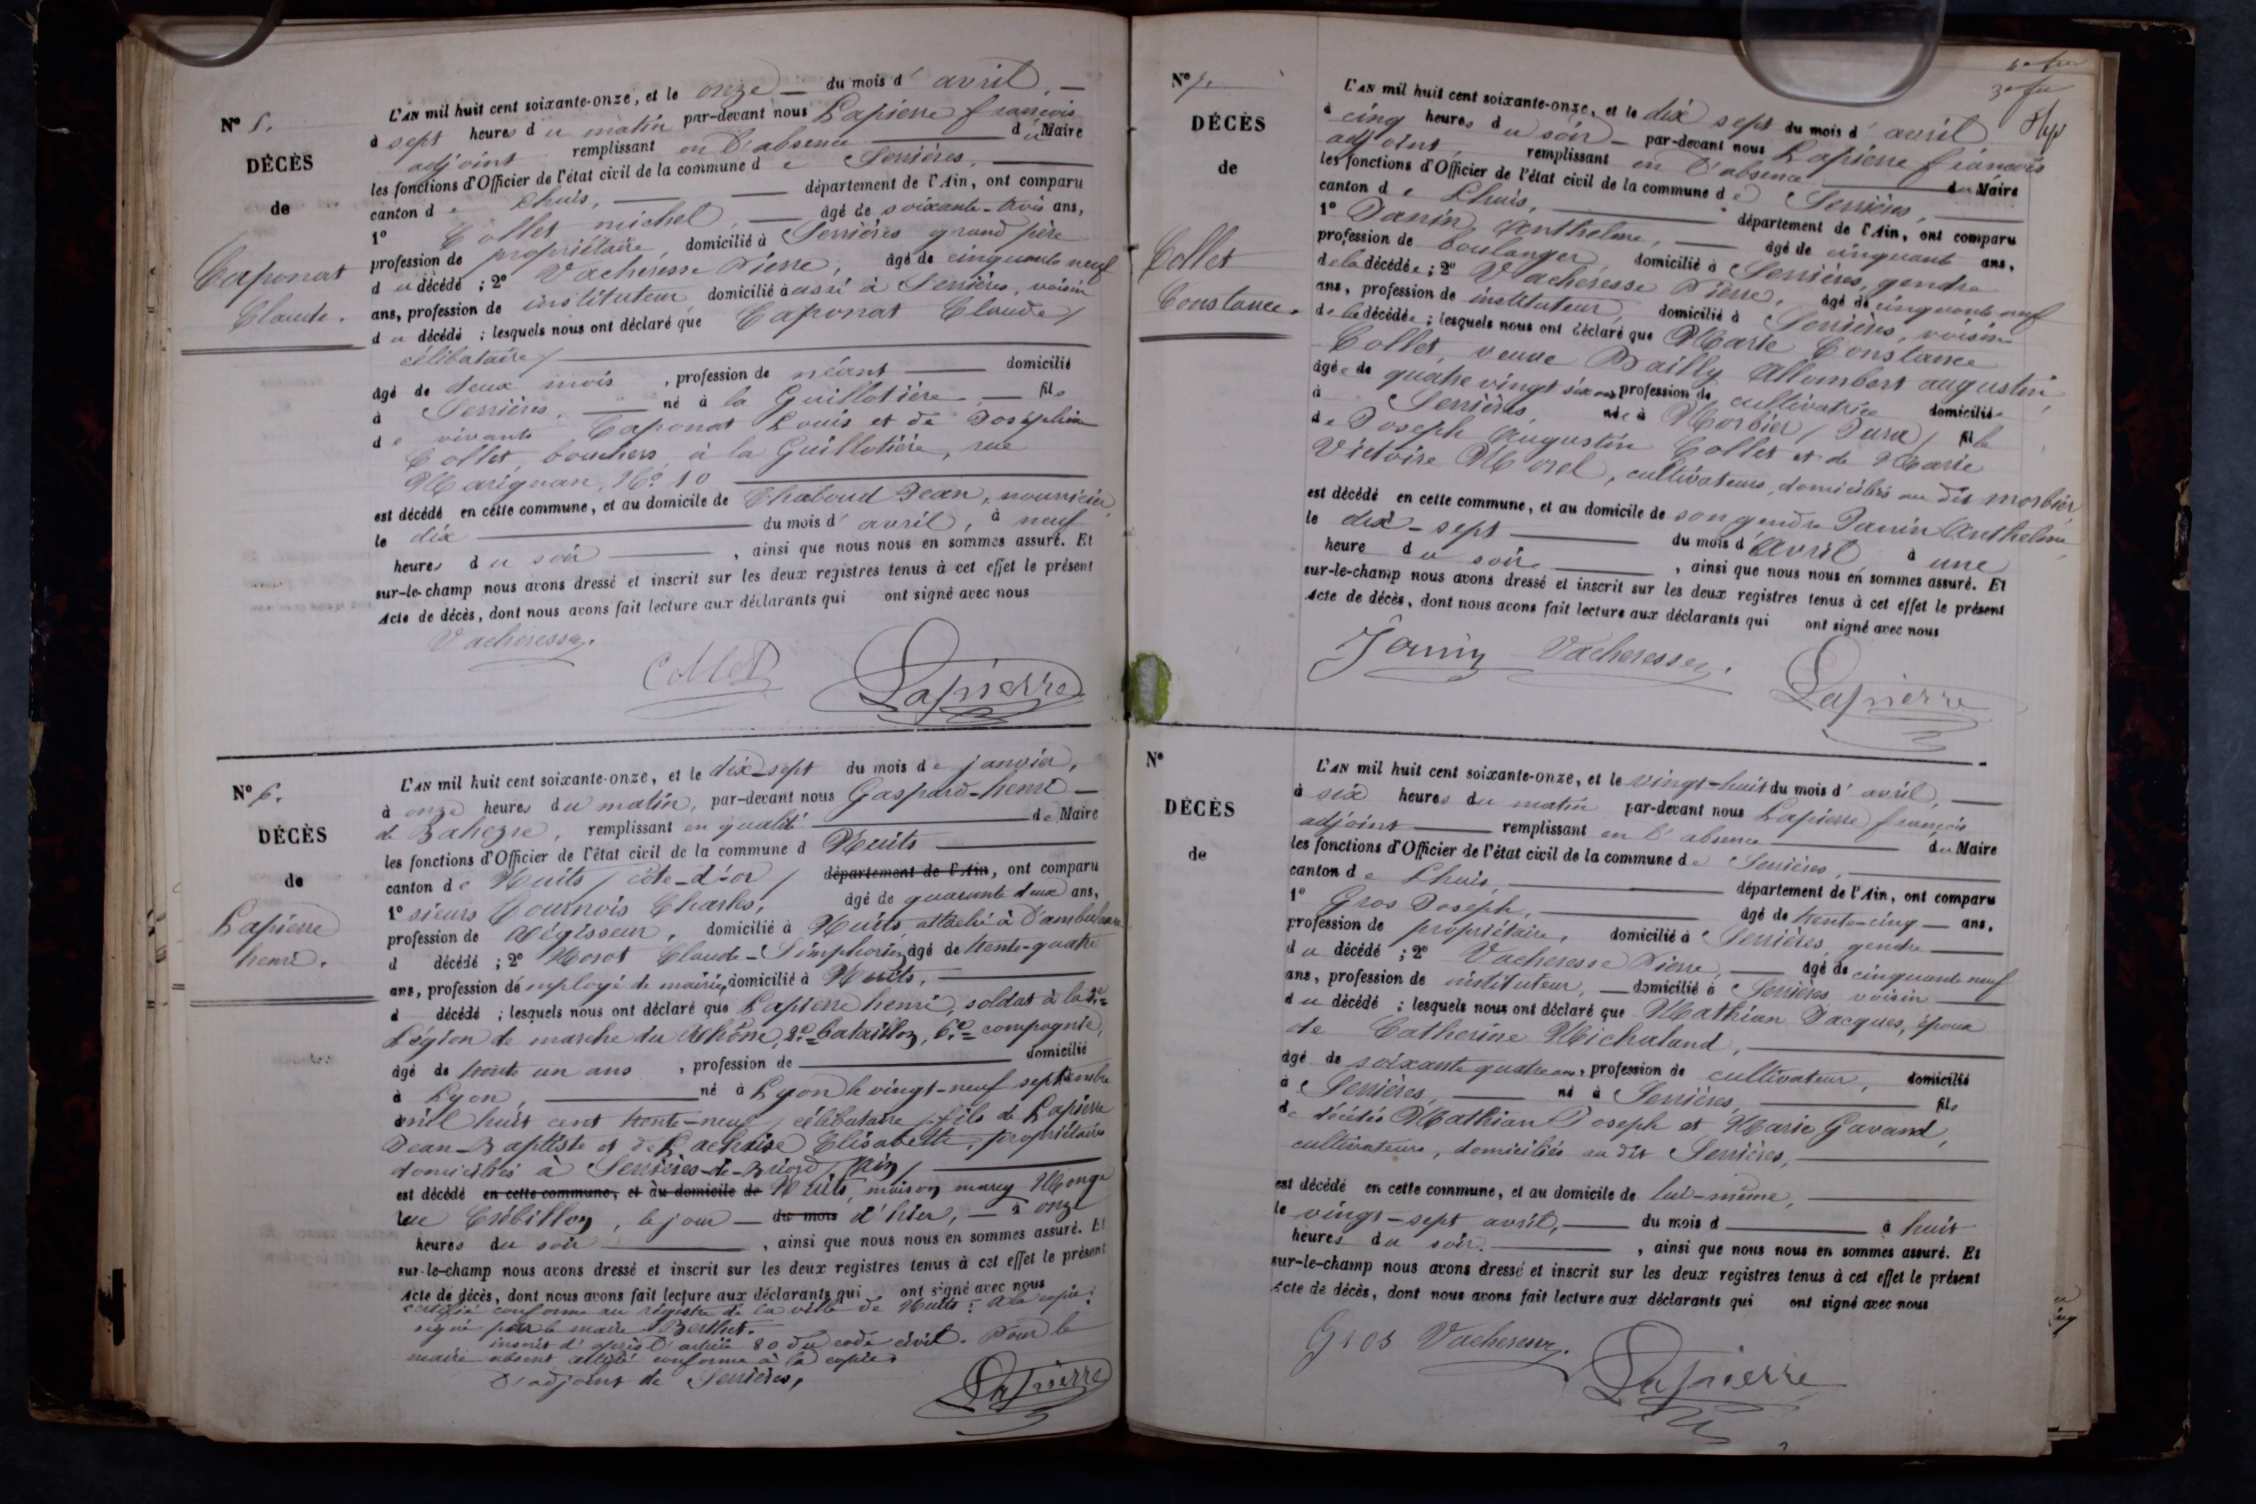 N° 5.
DÉCÈS
de
Caponat
Claude.
L'AN mil huit cent soixante-onze, et le onze du mois d' avril,
à sept heures du matin par-devant nous Lapierre françois
adjoint remplissant en l'absence du Maire
les fonctions d'Officier de l'état civil de la commune de Serrières,
canton de Lhuis, département de l'Ain, ont comparu
1° Collet michel, âgé de soixante-trois ans,
profession de propriétaire domicilié à Serrières grand père
du décédé ; 2° Vacheresse Pierre, âgé de cinquante neuf
ans, profession de instituteur domicilié aussi à Serrières, voisin
du décédé ; lesquels nous ont déclaré que Caponat Claude /
célibataire /
âgé de deux mois, profession de néant domicilié
à Serrières, né à la Guillotière, fils
de vivants Caponat Louis et de Joséphine
Collet, bouchers à la Guillotière, rue
Marignan, N° 10
est décédé en cette commune, et au domicile de Chaboud Jean, nourricier,
le dix du mois d' avril, à neuf
heures du soir, ainsi que nous nous en sommes assuré. Et
sur-le-champ nous avons dressé et inscrit sur les deux registres tenus à cet effet le présent
Acte de décès, dont nous avons fait lecture aux déclarants qui ont signé avec nous
Vacheresse.
Collet
Lapierre
N° 6.
DÉCÈS
de
Lapierre
henri.
L'AN mil huit cent soixante-onze, et le dix-sept du mois de janvier,
à onze heures du matin, par-devant nous Gaspard-henri
de Bahezre, remplissant en qualité de Maire
les fonctions d'Officier de l'état civil de la commune d Nuits
canton de Nuits / côte-d'or / département de l'Ain, ont comparu
1° sieurs Cournois Charles, âgé de quarante deux ans,
profession de Régisseur, domicilié à Nuits attaché à l'ambulance
d décédé ; 2° Morot Claude-Simphorien, âgé de trente-quatre
ans, profession d'employé de mairie, domicilié à Nuits,
d décédé ; lesquels nous ont déclaré que Lapierre henri, soldat à la 2e
Légion de marche du Rhône, 2e bataillon, 6e compagnie,
âgé de trente un ans, profession de domicilié
à Lyon, né à Lyon le vingt-neuf septembre
mil huit cent trente-neuf, célibataire, fils de Lapierre
Jean-Baptiste et de Lachaise Elisabeth, propriétaires
domiciliés à Serrières-de-Briord / Ain /
est décédé en cette commune, et au domicile de Nuits, maison marey Monge
rue Crébillon, le jour du mois d'hier, à onze
heures du soir, ainsi que nous nous en sommes assuré. Et
sur-le-champ nous avons dressé et inscrit sur les deux registres tenus à cet effet le présent
Acte de décès, dont nous avons fait lecture aux déclarants qui ont signé avec nous
certifié conforme au régistre de la ville de Nuits : A la copie :
signé par le maire Berthet.
inscrit d'après l'article 80 du code civil. Pour le
maire absent certifié conforme à la copie.
L'adjoint de Serrières,
Lapierre
N° 7.
DÉCÈS
de
Collet
Constance.
L'AN mil huit cent soixante-onze, et le dix sept du mois d' avril
à cinq heures du soir par-devant nous Lapierre françois
adjoint, remplissant en l'absence du Maire
les fonctions d'Officier de l'état civil de la commune de Serrières,
canton de Lhuis, département de l'Ain, ont comparu
1° Janin Anthelme, âgé de cinquante ans,
profession de boulanger domicilié à Serrières, gendre
de la décédée ; 2° Vacheresse Pierre, âgé de cinquante neuf
ans, profession de instituteur domicilié à Serrières, voisin
de la décédée ; lesquels nous ont déclaré que Marie Constance
Collet, veuve Bailly Allombert augustin,
âgée de quatre vingt six ans profession de cultivatrice domiciliée
à Serrières née à Morbier / Jura / fille
de Joseph Augustin Collet et de Marie
Victoire Morel, cultivateurs, domiciliés au dit morbier
est décédé en cette commune, et au domicile de son gendre Janin Anthelme,
le dix-sept du mois d' avril à une
heure du soir, ainsi que nous nous en sommes assuré. Et
sur-le-champ nous avons dressé et inscrit sur les deux registres tenus à cet effet le présent
Acte de décès, dont nous avons fait lecture aux déclarants qui ont signé avec nous
Janin Vacheresse.
Lapierre
N°
DÉCÈS
de
L'AN mil huit cent soixante-onze, et le vingt-huit du mois d' avril,
à six heures du matin par-devant nous Lapierre françois
adjoint remplissant en l'absence du Maire
les fonctions d'Officier de l'état civil de la commune de Serrières,
canton de Lhuis, département de l'Ain, ont comparu
1° Gros Joseph, âgé de trente-cinq ans,
profession de propriétaire, domicilié à Serrières, gendre
du décédé ; 2° Vacheresse Pierre, âgé de cinquante neuf
ans, profession de instituteur, domicilié à Serrières voisin
du décédé ; lesquels nous ont déclaré que Mathian Jacques, époux
de Catherine Michaland,
âgé de soixante quatre ans, profession de cultivateur, domicilié
à Serrières, né à Serrières, fils
de décédés Mathian Joseph et Marie Gavand,
cultivateurs, domiciliés au dit Serrières,
est décédé en cette commune, et au domicile de lui-même,
le vingt-sept avril, du mois d à huit
heures du soir, ainsi que nous nous en sommes assuré. Et
sur-le-champ nous avons dressé et inscrit sur les deux registres tenus à cet effet le présent
Acte de décès, dont nous avons fait lecture aux déclarants qui ont signé avec nous
Gros Vacheresse.
Lapierre